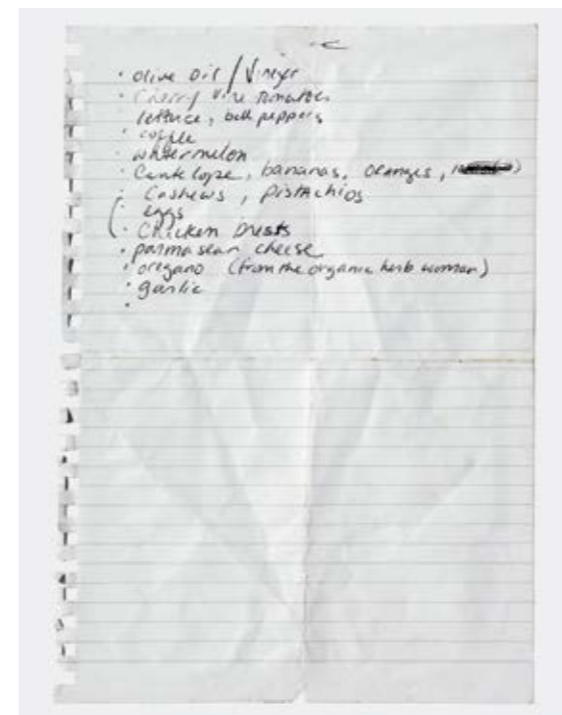 • olive oil / Vineger
• Cherry Vine tomatoes
lettuce, bell peppers
• coffee
• whatermelon
• Cantelope, bananas, oranges,
• Cashews, pistachios
• eggs
• Chicken brests
• parmasean cheese
• oregano (from the organic herb woman)
• garlic
•